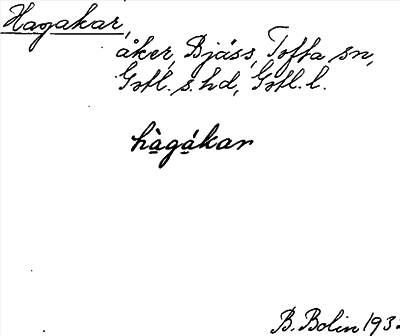 Hagakar,
åker, Bjäss, Tofta sn,
Gotl. s. hd, Gotl. l.
hàgákar
B. Bolin 193